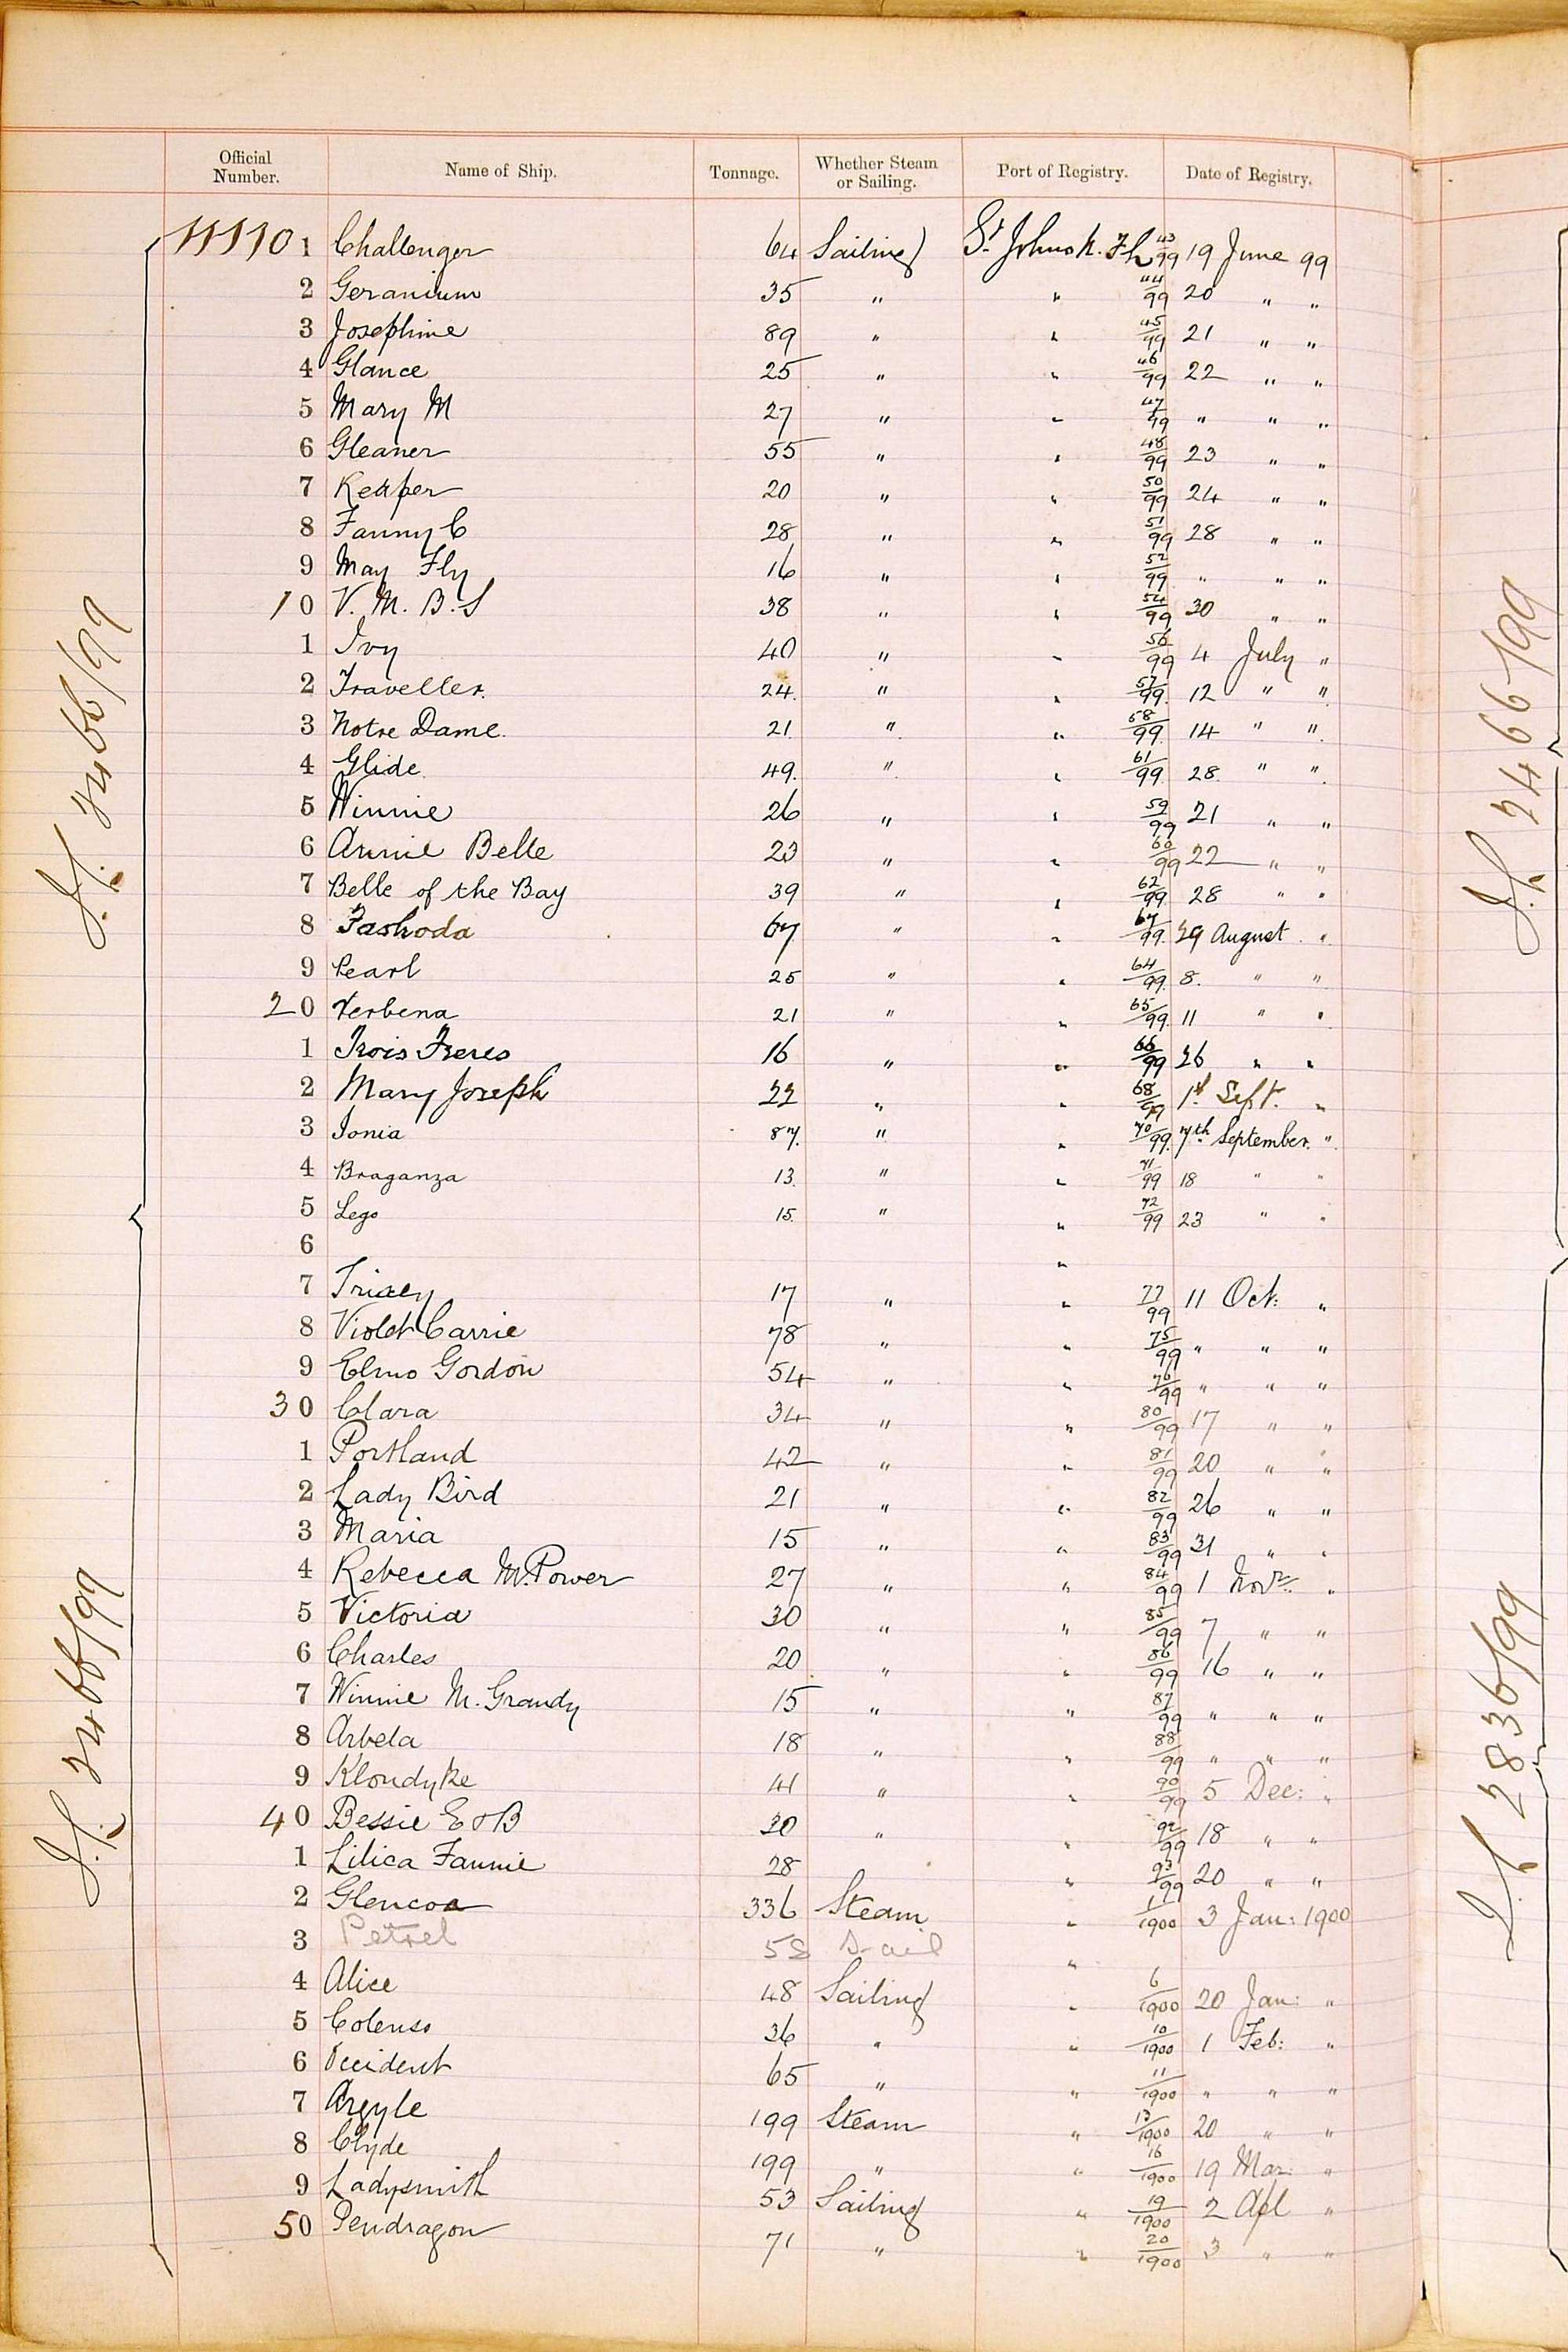 Official Number. Name of Ship. Tonnage. Whether Steam or Sailing. Port of Registry. Date of Registry.
1 Challenger 64 Sailing St Johns N. Fh 43/99 19 June 99
2 Geranium 35 " " 44/99 20 " "
3 Josephine 89 " " 45/99 21 " "
4 Glance 25 " " 46/99 22 " "
5 Mary M 27 " " 47/99 " " "
6 Gleaner 55 " " 48/99 23 " "
7 Reaper 20 " " 50/99 24 " "
8 Fanny C 28 " " 51/99 28 " "
9 May Fly 16 " " 52/99 " " "
10 V. M. B. S 38 " " 54/99 30 " "
1 Ivy 40 " " 56/99 4 July "
2 Traveller. 24. " " 57/99. 12 " "
3 Notre Dame. 21. " " 58/99. 14 " "
4 Glide. 49. " " 61/99. 28. " "
5 Winnie 26 " " 59/99 21 " "
6 Annie Belle 23 " " 60/99 22 " "
7 Belle of the Bay 39 " " 62/99. 28 " "
8 Fashoda 67 " " 67/99. 29 August "
9 Pearl 25 " " 64/99. 8. " "
20 Verbena 21 " " 65/99. 11 " "
1 Trois Freres 16 " " 66/99 26 " "
2 Mary Joseph 22 " " 68/99 1st Sept. "
3 Ionia 87. " " 70/99. 7th September. "
4 Braganza 13. " " 71/99 18 " "
5 Lego 15. " " 72/99 23 " "
6 "
7 Trixey 17 " " 77/99 11 Oct: "
8 Violet Carrie 78 " " 75/99 " " "
9 Elmo Gordon 54 " " 76/99 " " "
30 Clara 34 " " 80/99 17 " "
1 Portland 42 " " 81/99 20 " "
2 Lady Bird 21 " " 82/99 26 " "
3 Maria 15 " " 83/99 31 " "
4 Rebecca M. Power 27 " " 84/99 1 Novr. "
5 Victoria 30 " " 85/99 7 " "
6 Charles 20 " " 86/99 16 " "
7 Winnie M. Grandy 15 " " 87/99 " " "
8 Arbela 18 " " 88/99 " " "
9 Klondyke 41 " " 90/99 5 Dec: "
40 Bessie E & B 30 " " 92/99 18 " "
1 Lilica Fannie 28 " 93/99 20 " "
2 Glencoe 336 Steam " 1/1900 3 Jan: 1900
3 Petrel 58 Sail "
4 Alice 48 Sailing " 6/1900 20 Jan: "
5 Colenso 36 " " 10/1900 1 Feb: "
6 Occident 65 " " 11/1900 " " "
7 Argyle 199 Steam " 13/1900 20 " "
8 Clyde 199 " " 16/1900 19 Mar: "
9 Ladysmith 53 Sailing " 19/1900 2 Apl "
50 Pendragon 71 " " 20/1900 3 " "
2466/99
2466/99
2466/99
2836/99